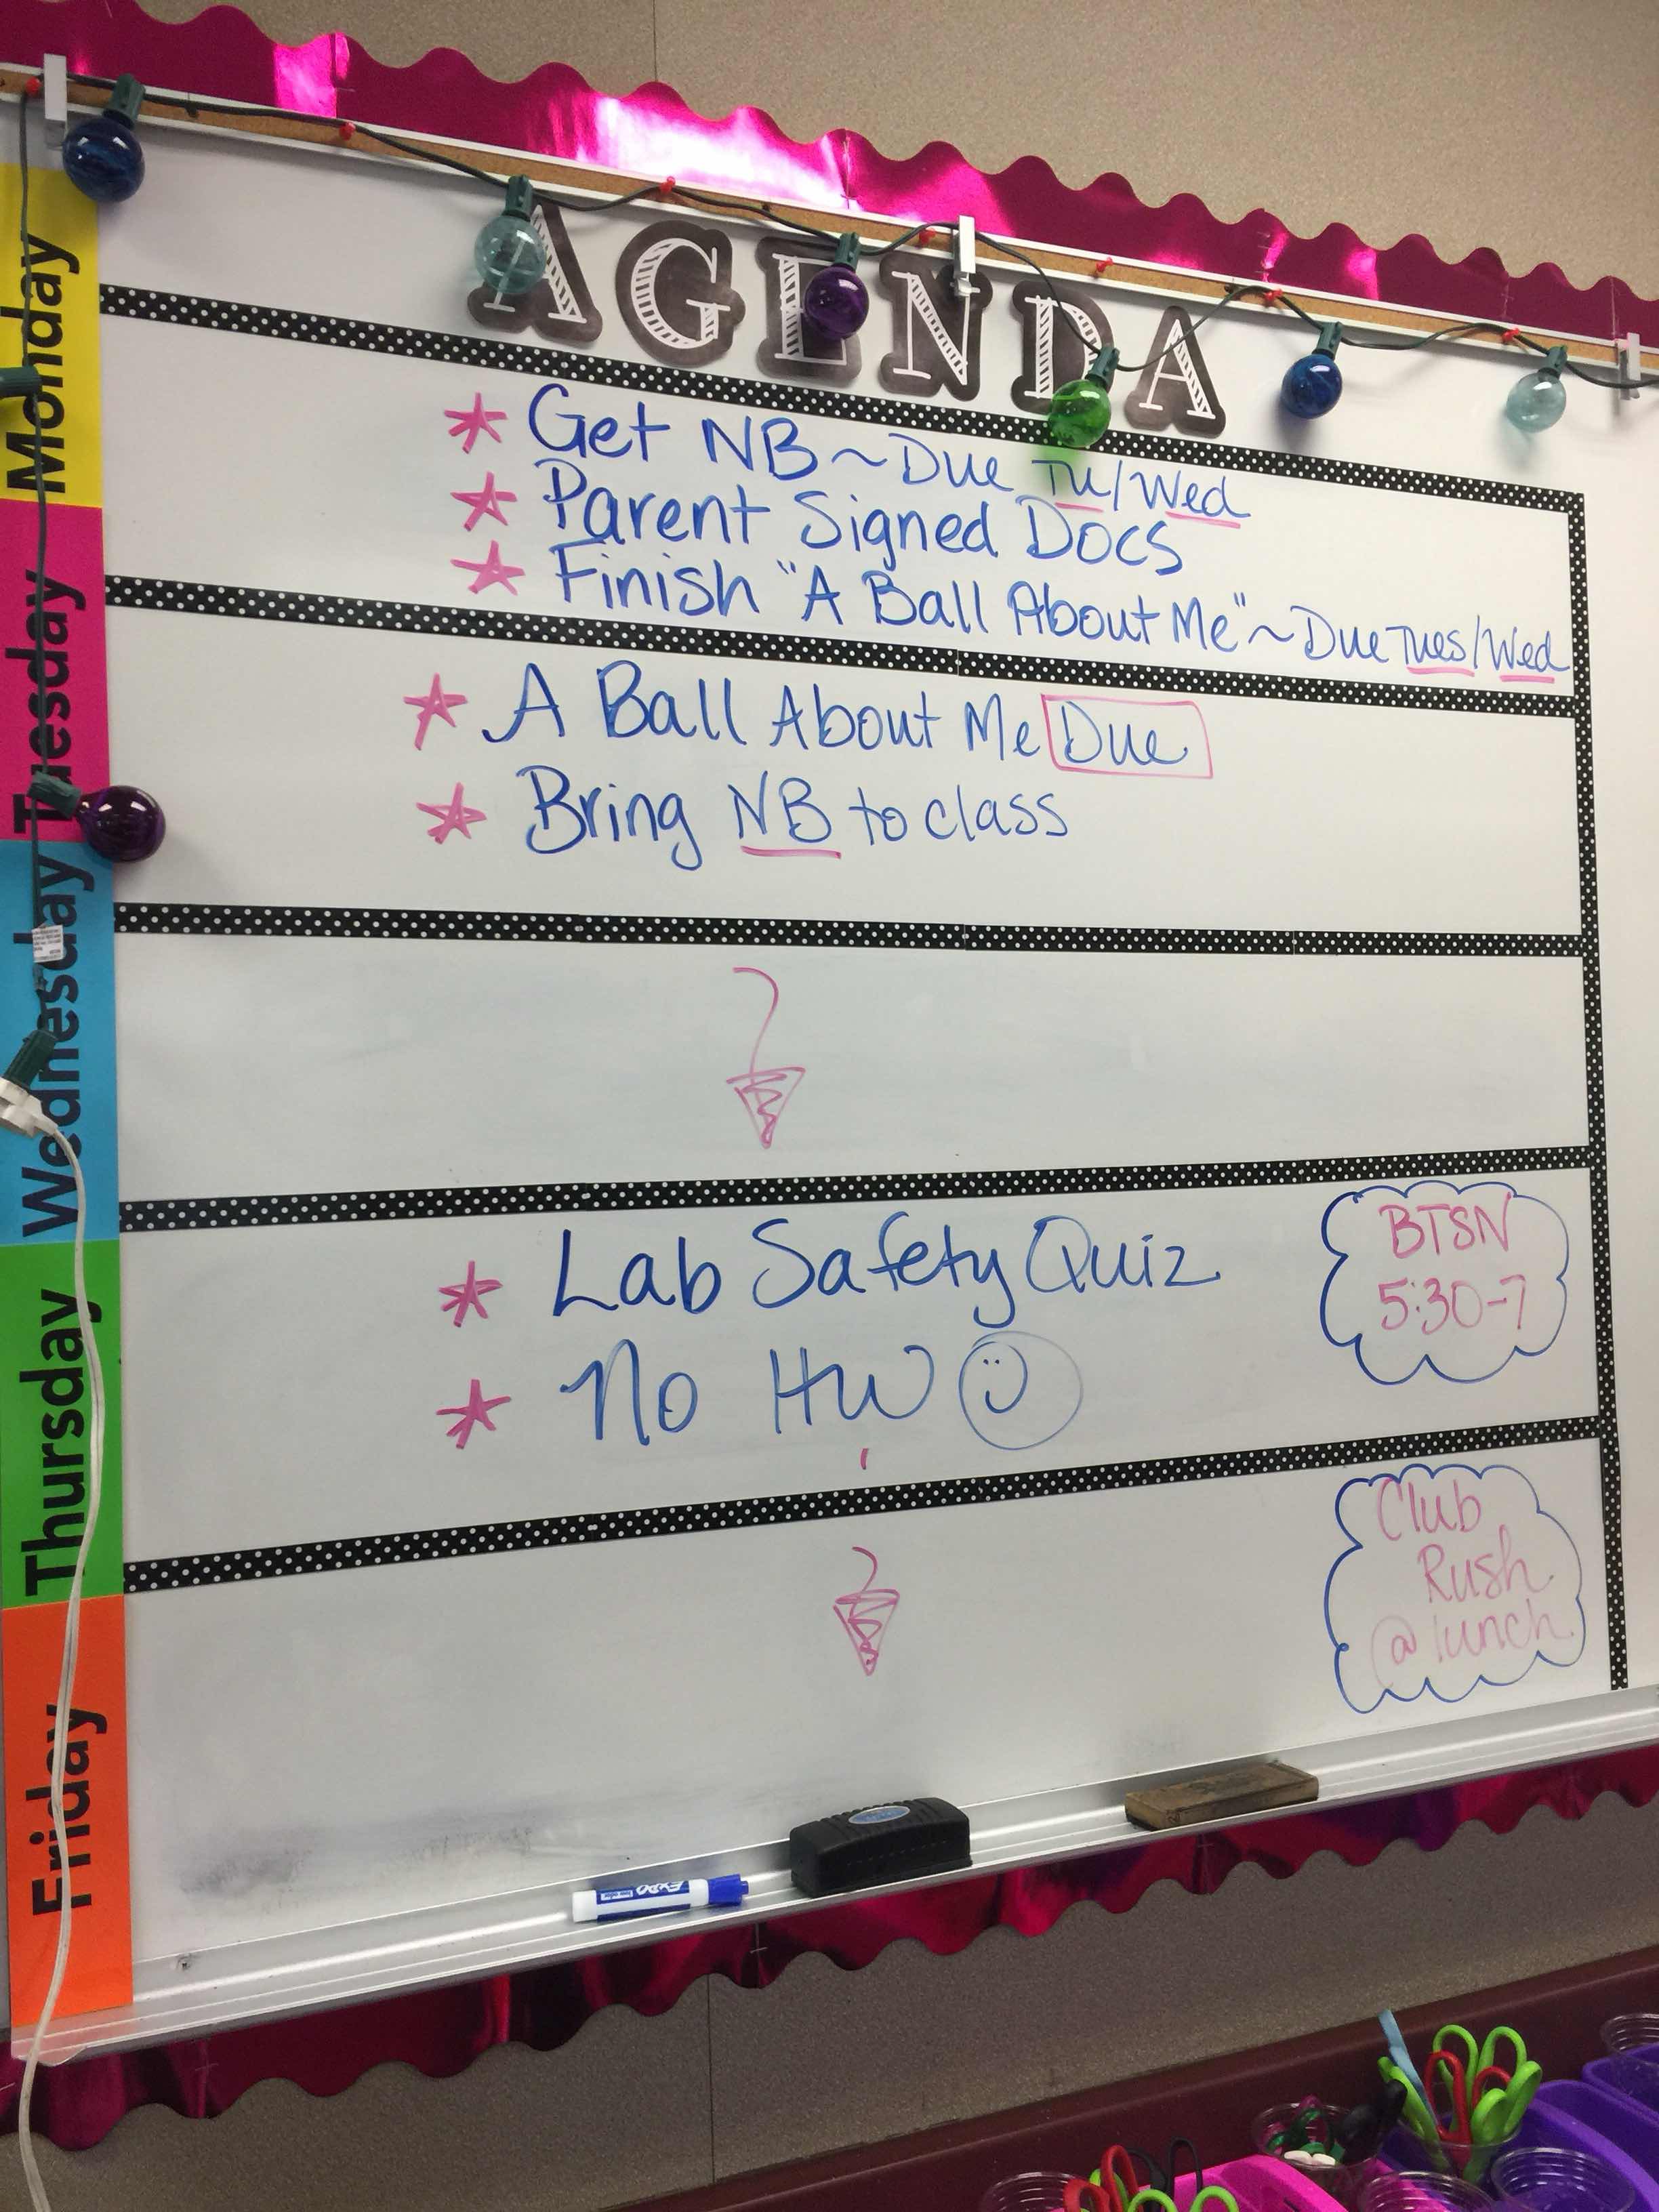 AGENDA
Monday
Get NB ~ Due Tu/Wed
Parent Signed Docs
Finish "A Ball About Me" ~ Due Tues/Wed
Tuesday
A Ball About Me Due
Bring NB to class
Wednesday
Thursday
Lab Safety Quiz
No HW
BTSN
5:30-7
Friday
Club
Rush
@ lunch
EXPO